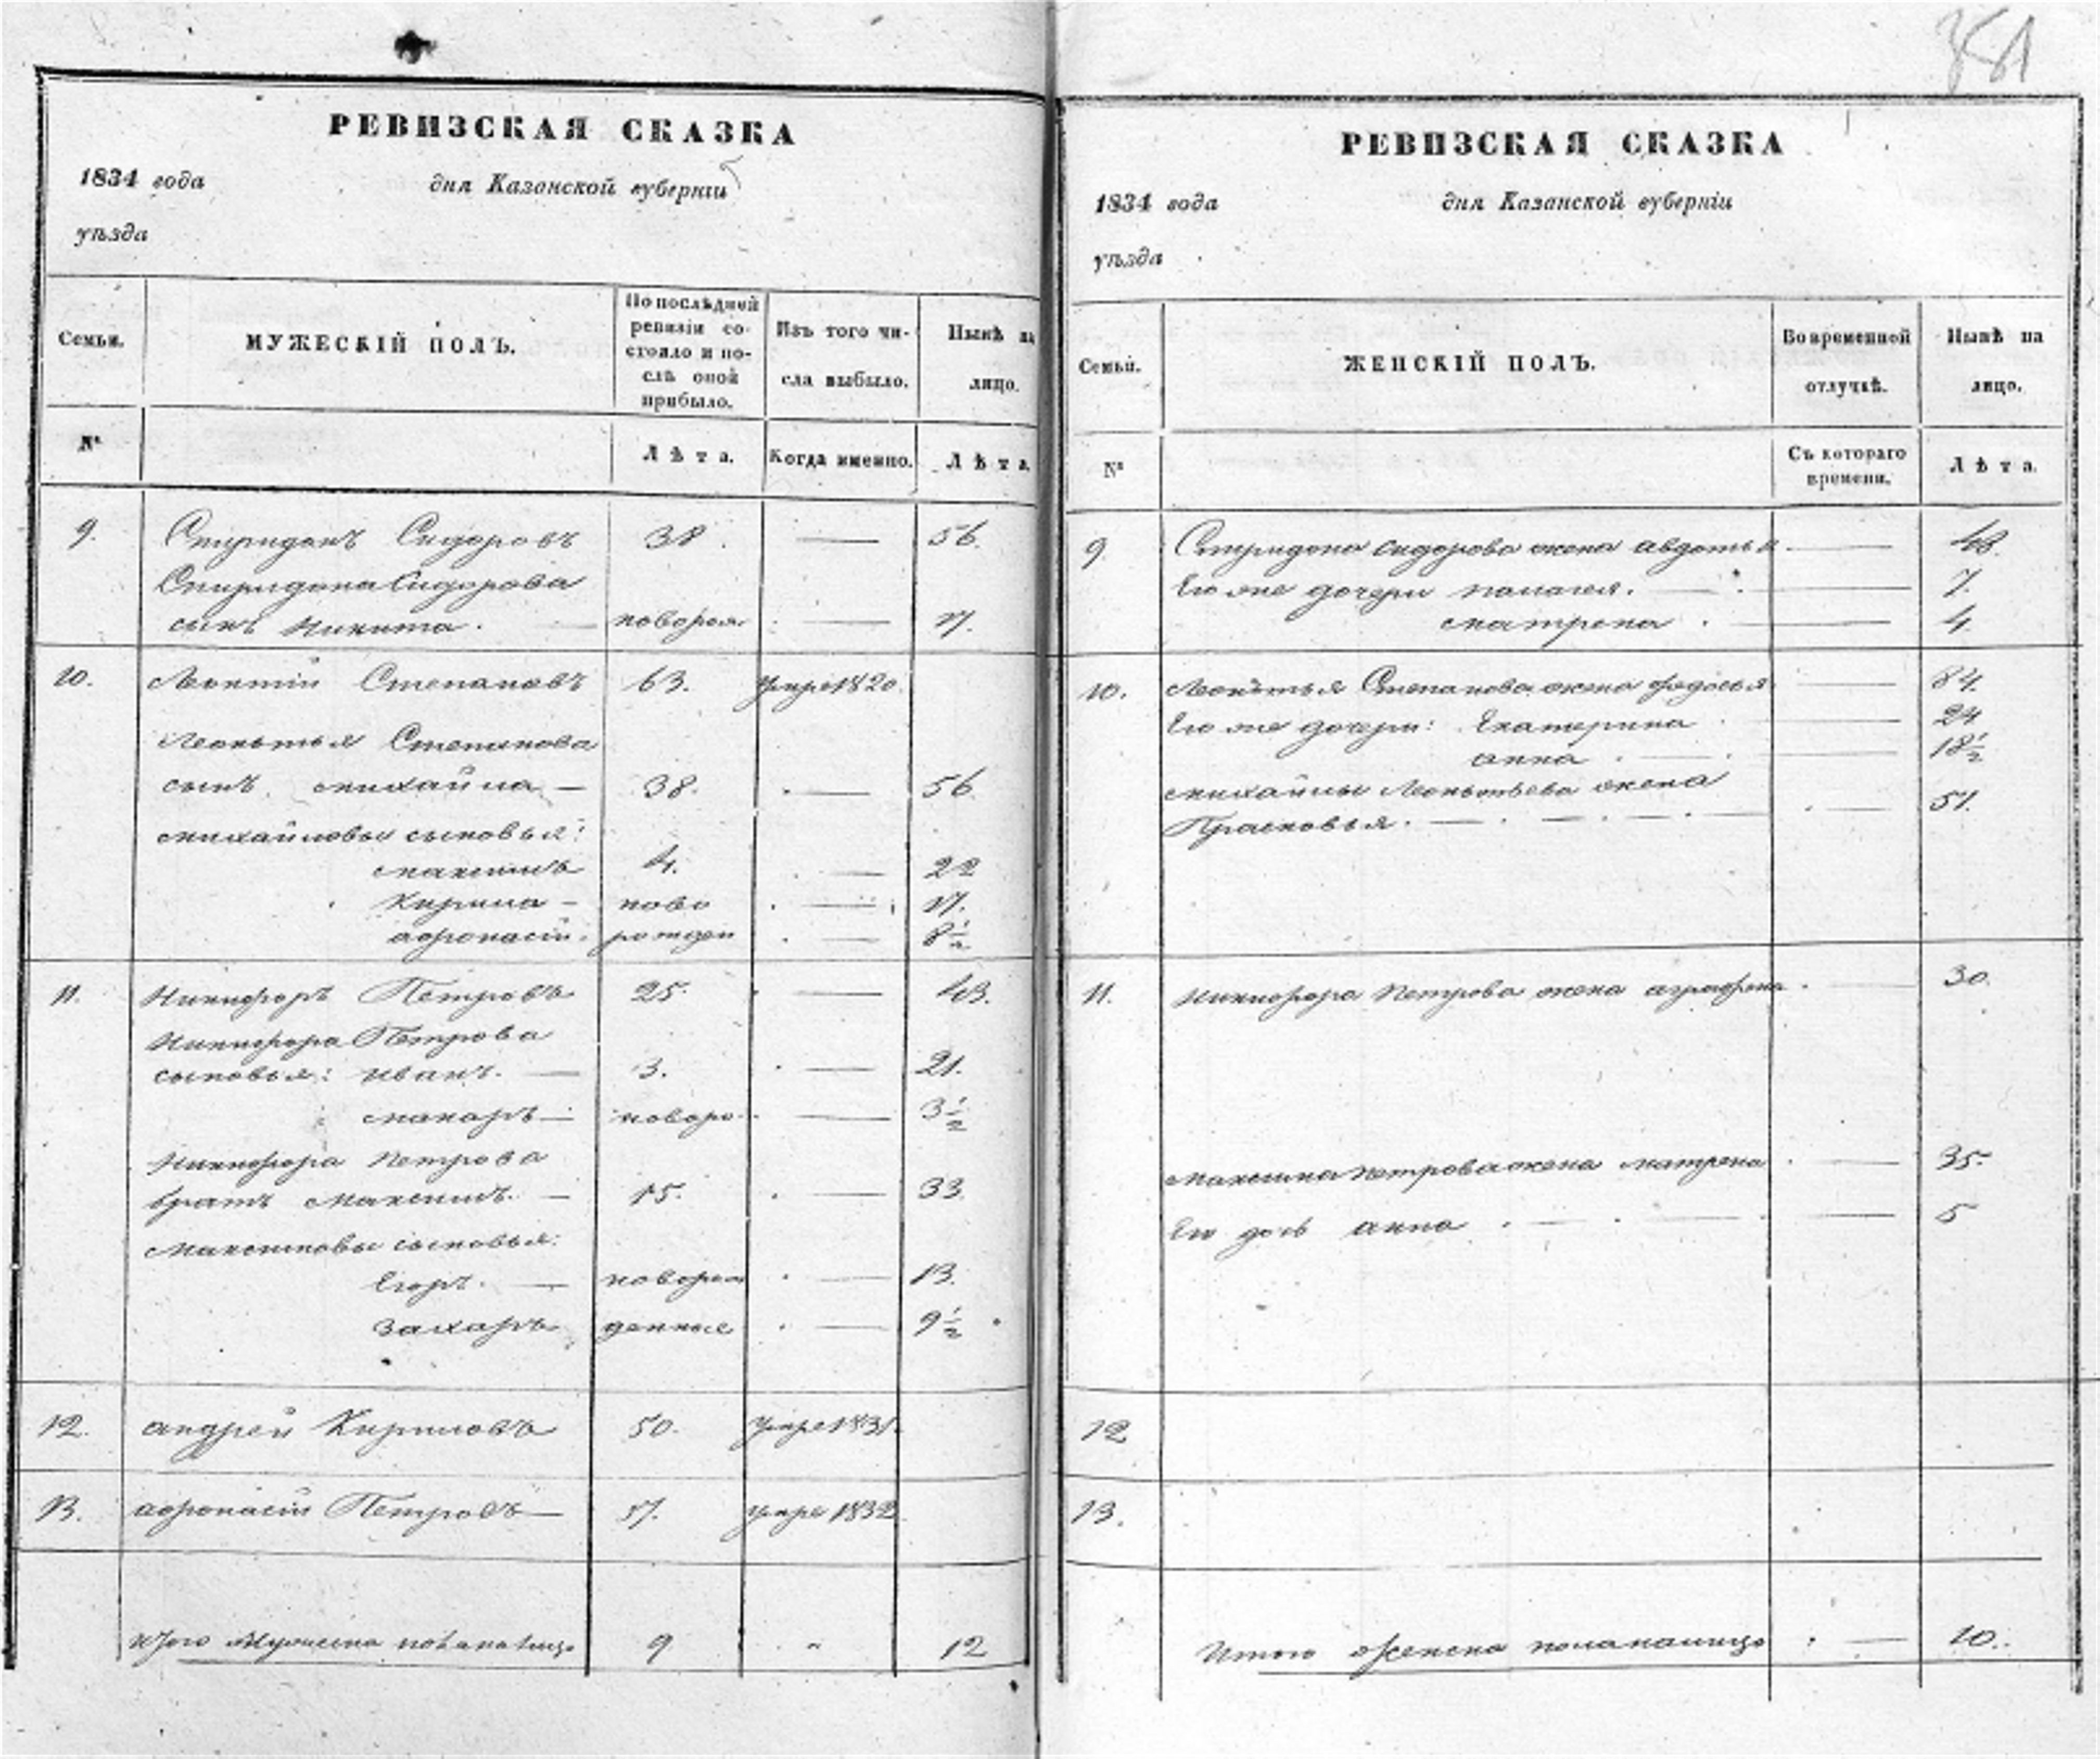 381
РЕВИЗСКАЯ СКАЗКА
1834 года дня Казанской губерніи
уѣзда
Семьи. МУЖЕСКІЙ ПОЛЪ. По послѣдней ревизіи состояло и послѣ оной прибыло. Изъ того числа выбыло. Нынѣ на лицо.
№ Лѣта. Когда именно. Лѣта
9. Спиридонъ Сидоровъ 38. — 56.
Спиридона Сидорова
сынъ Никита. — новорож. — 17.
10. Леонтій Степановъ 63. умре 1820.
Леонтья Степанова
сынъ михайла — 38. — 56
михайловы сыновья:
максимъ 4. — 22
Кирила — ново — 17.
афонасій. рожден — 8 1/2
11. Никифоръ Петровъ 25. — 43.
Никифора Петрова
сыновья: иванъ. — 3. — 21.
макаръ — новоро — 3 1/2
Никифора Петрова
братъ Максимъ. — 15. — 33
Максимовы сыновья:
Егоръ. — новорож — 13.
Захаръ денные — 9 1/2
12. андрей Кириловъ 50. умре 1831.
13. афонасій Петровъ — 51. умре 1832
Итого Мужеска пола налицо 9 " 12
РЕВИЗСКАЯ СКАЗКА
1834 года дня Казанской губерніи
уѣзда
Семьи. ЖЕНСКІЙ ПОЛЪ. Во временной отлучкѣ. Нынѣ на лицо.
№ Съ котораго времени. Лѣта.
9. Спиридона сидорова жена авдотья — 48.
Его же дочери палагея. — 7.
матрена — 4.
10. Леонтья Степанова жена федосья — 84.
Его же дочери: Екатерина — 24
анна — 18 1/2
михайлы Леонтьева жена
Прасковья. — 51.
11. Никифора Петрова жена аграфена. — 30.
максима Петрова жена матрена — 35.
Его дочь анна — 5
12
13.
Итого женска пола налицо — 10.